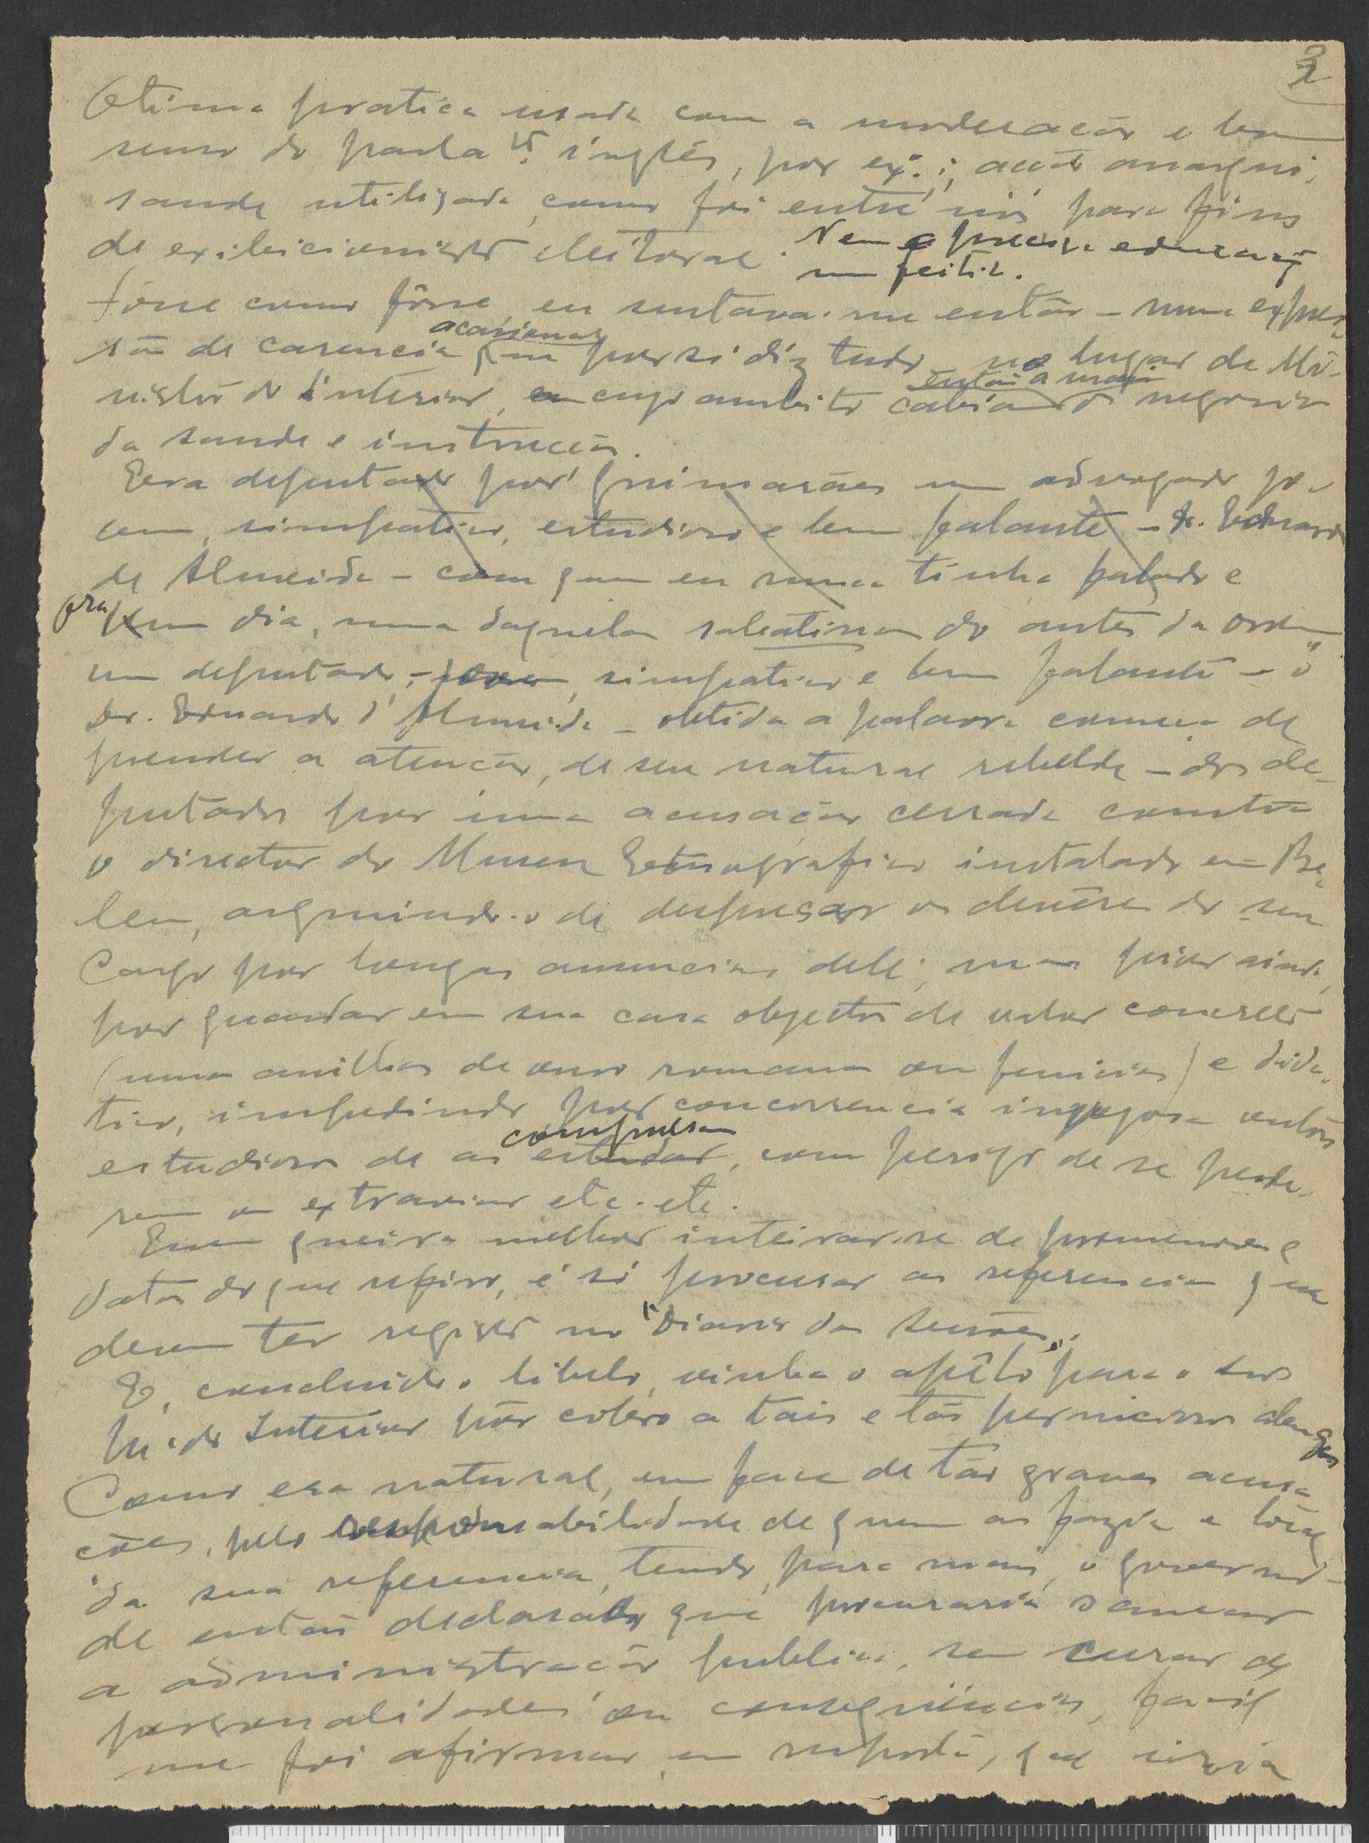 2
Otima pratica usada com a moderação e bom
senso do parla.to inglês, por ex.; acção anarqui-
sante utilizada, como foi entre nós para fins
de exibicionismo eleitoral. Nem o processo educacão
um feitio.
Fosse como fôsse eu sentava-me então - numa expres-
são de carencia ocasional que por si diz tudo no lugar de Mi-
nistro do Interior, em cujo ambito cabiam então a mais os negocios
da saude e instrucção.
Era deputado por Guimarães um advogado jo-
vem, simpatico, estudioso e bem falante - dr. Eduardo
de Almeida - com quem eu nunca tinha falado e
Ora um dia, numa daquelas sabatinas do antes da ordem
um deputado, - jovem, simpatico e bem falante - o
Dr. Eduardo d'Almeida - obtida a palavra comeca de
prender a atenção, de seu natural rebelde - dos de-
putados por uma acusação cerrada contra
o director do Museu Etnografico instalado em Be-
lem, arguindo-o de desprezar os devêres do seu
Cargo por longas ausencias dele; mas pior ainda,
por guardar em sua casa objectos de valor concreto
(umas anilhas de ouro romanas ou fenicias) e didá-
tico, impedindo por concorrencia invejosa outros
estudiosos de as estudar compulsar, com perigo de se perde-
rem ou extraviar etc. etc.
Quem queira melhor inteirar-se de pormenores e
datas do que refiro, é só procurar as referencias que
devem ter registo no "Diario das Sessões".
E, concluido o libelo, vinha o apêlo para o sr.
M. do Interior pôr cobro a tais e tão perniciosos desmandos
Como era natural, em face de tão graves acusa-
ções, pela responsabilidade de quem as fazia e local
da sua referencia, tendo, para mais, o governo
de então declarado que procuraria sanear
a administração publica, sem curar de
personalidades ou consequências, facil
me foi afirmar, em resposta, que iria